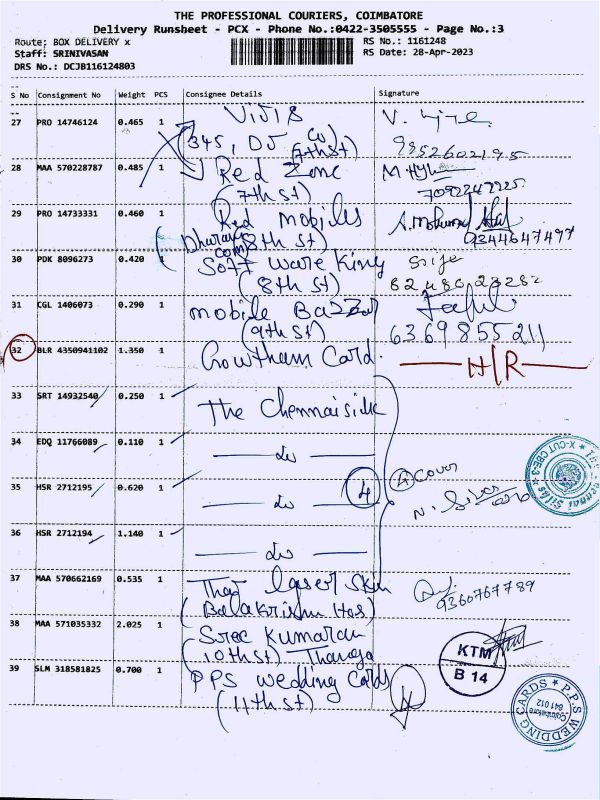 THE PROFESSIONAL COURIERS, COIMBATORE
Delivery Runsheet - PCX - Phone No.:0422-3505555 - Page No.:3
Route: BOX DELIVERY x
Staff: SRINIVASAN
DRS No.: DCJB116124803
RS No.: 1161248
RS Date: 28-Apr-2023
S No Consignment No Weight PCS Consignee Details Signature
27 PRO 14746124 0.465 1
(345, DJ
7th st)
9852602195
28 MAA 570228787 0.485 1 Red Zone
(7th st)
7092247225
29 PRO 14733331 0.460 1 Red Mobiles
(8th st)
9344647497
30 PDK 8096273 0.420 1 Soft ware King
(8th st)
31 CGL 1406073 0.290 1
mobile
(9th st)
6369855211
32 BLR 4350941102 1.350 1 Gowtham Card. H/R
33 SRT 14932540 0.250 1 The Chennai silk
34 EDQ 11766089 0.110 1 do
35 HSR 2712195 0.620 1 do 4 4 Cover
36 HSR 2712194 1.140 1 do
37 MAA 570662169 0.535 1 laser skin
9360767789
38 MAA 571035332 2.025 1 Sree Kumaran
(10th st)
KTM
B 14
39 SLM 318581825 0.700 1 PPS Wedding Cards
(11th st)
P.P.S WEDDING CARDS
Coimbatore
641 012